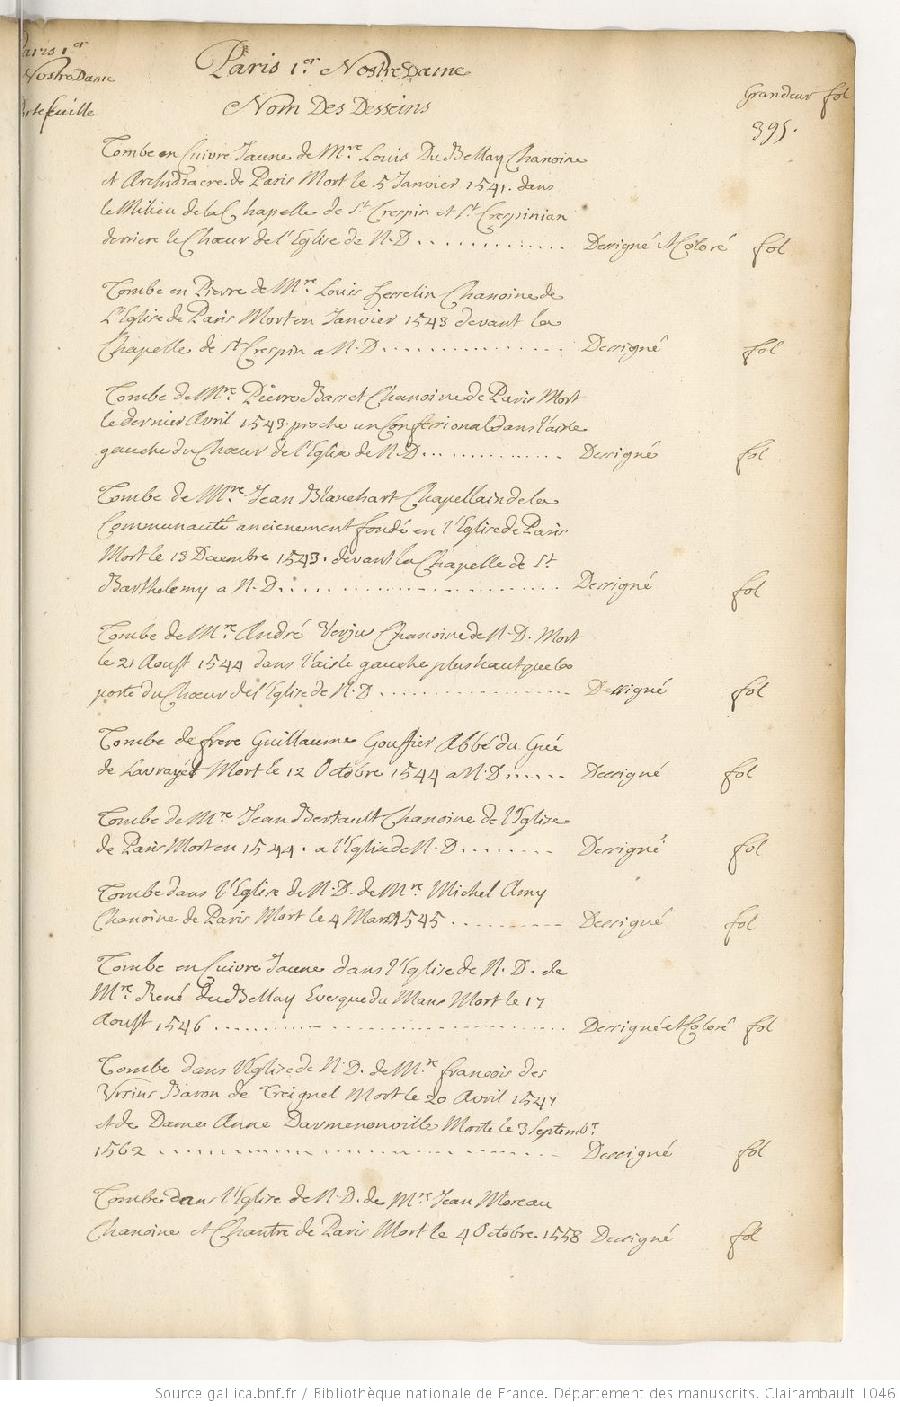 Paris 1er
Nostre Dame
Portefeuille
Paris 1er Nostre Dame
Nom Des Desseins
Grandeur fol
395.
Tombe en Cuivre Jaune de Mre Louis Du Bellay Chanoine
et Archidiacre de Paris Mort le 5 Janvier 1541. dans
le Milieu de la Chapelle de St Crespin et St Crespinian
derriere le Chœur de l'Eglise de N.D. . . . . . . . . . . . Dessigné et Coloré fol
Tombe en Pierre de Mre Louis Hesselin Chanoine de
L'Eglise de Paris Mort en Janvier 1543 devant la
Chapelle de St Crespin a N.D. . . . . . . . . . . . . . Dessigné fol
Tombe de Mre Pierre Barret Chanoine de Paris Mort
le dernier Avril 1543 proche un Confessional dans l'aisle
gauche du Chœur de l'Eglise de N.D. . . . . . . . . . . Dessigné fol
Tombe de Mre Jean Blanchart Chapellain de la
Communauté anciennement fondé en l'Eglise de Paris
Mort le 13 Decembre 1543. devant la Chapelle de St
Barthelemy a N.D. . . . . . . . . . . . . . . . . . Dessigné fol
Tombe de Mre André Verju Chanoine de N.D. Mort
le 21 Aoust 1544 dans l'aisle gauche plus haut que la
porte du Chœur de l'Eglise de N.D. . . . . . . . . . . . . Dessigné fol
Tombe de frere Guillaume Gouffier Abbé du Gué
de Mort le 12 Octobre 1544 a N.D. . . . . . Dessigné fol
Tombe de Mre Jean Bertault Chanoine de l'Eglise
de Paris Mort en 1544. a l'Eglise de N.D. . . . . . . . Dessigné fol
Tombe dans l'Eglise de N.D. de Mre Michel Amy
Chanoine de Paris Mort le 4 Mars 1545 . . . . . . . . . Dessigné fol
Tombe en Cuivre Jaune dans l'Eglise de N.D. de
Mre René du Bellay Evesque du Mans Mort le 17
Aoust 1546 . . . . . . . . . . . . . . . . . . . . . . . . . Dessigné et Coloré fol
Tombe dans l'Eglise de N.D. de Mre francois des
Ursins Baron de Treignel Mort le 20 Avril 1547
et de Dame Anne Darmenonville Morte le 3 Septembr
1562 . . . . . . . . . . . . . . . . . . . . . . . . . . . Dessigné fol
Tombe dans l'Eglise de N.D. de Mre Jean Moreau
Chanoine et Chantre de Paris Mort le 4 Octobre. 1558 Dessigné fol
Source gallica.bnf.fr / Bibliothèque nationale de France. Département des manuscrits. Clairambault 1046